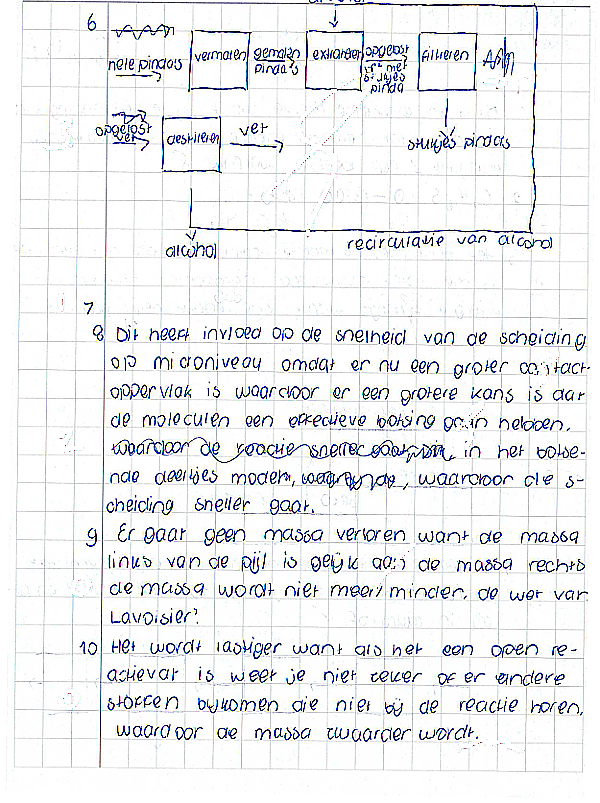 6
hele pindas
vermalen
gemalen pinda's
extraheren
opgelost vet met stukjes pinda
filtreren
stukjes pindas
opgelost vet
destilleren
vet
alcohol
recirculatie van alcohol
7
8 Dit heeft invloed op de snelheid van de scheiding
op microniveau omdat er nu een groter contact-
oppervlak is waardoor er een grotere kans is dat
de moleculen een effectieve botsing gaan hebben.
in het botse-
nde deeltjes model, waardoor de s-
cheiding sneller gaat.
9 Er gaat geen massa verloren want de massa
links van de pijl is gelijk aan de massa rechts
de massa wordt niet meer/minder, de wet van
Lavoisier.
10 Het wordt lastiger want als het een open re-
actievat is weet je niet zeker of er andere
stoffen bijkomen die niet bij de reactie horen,
waardoor de massa zwaarder wordt.